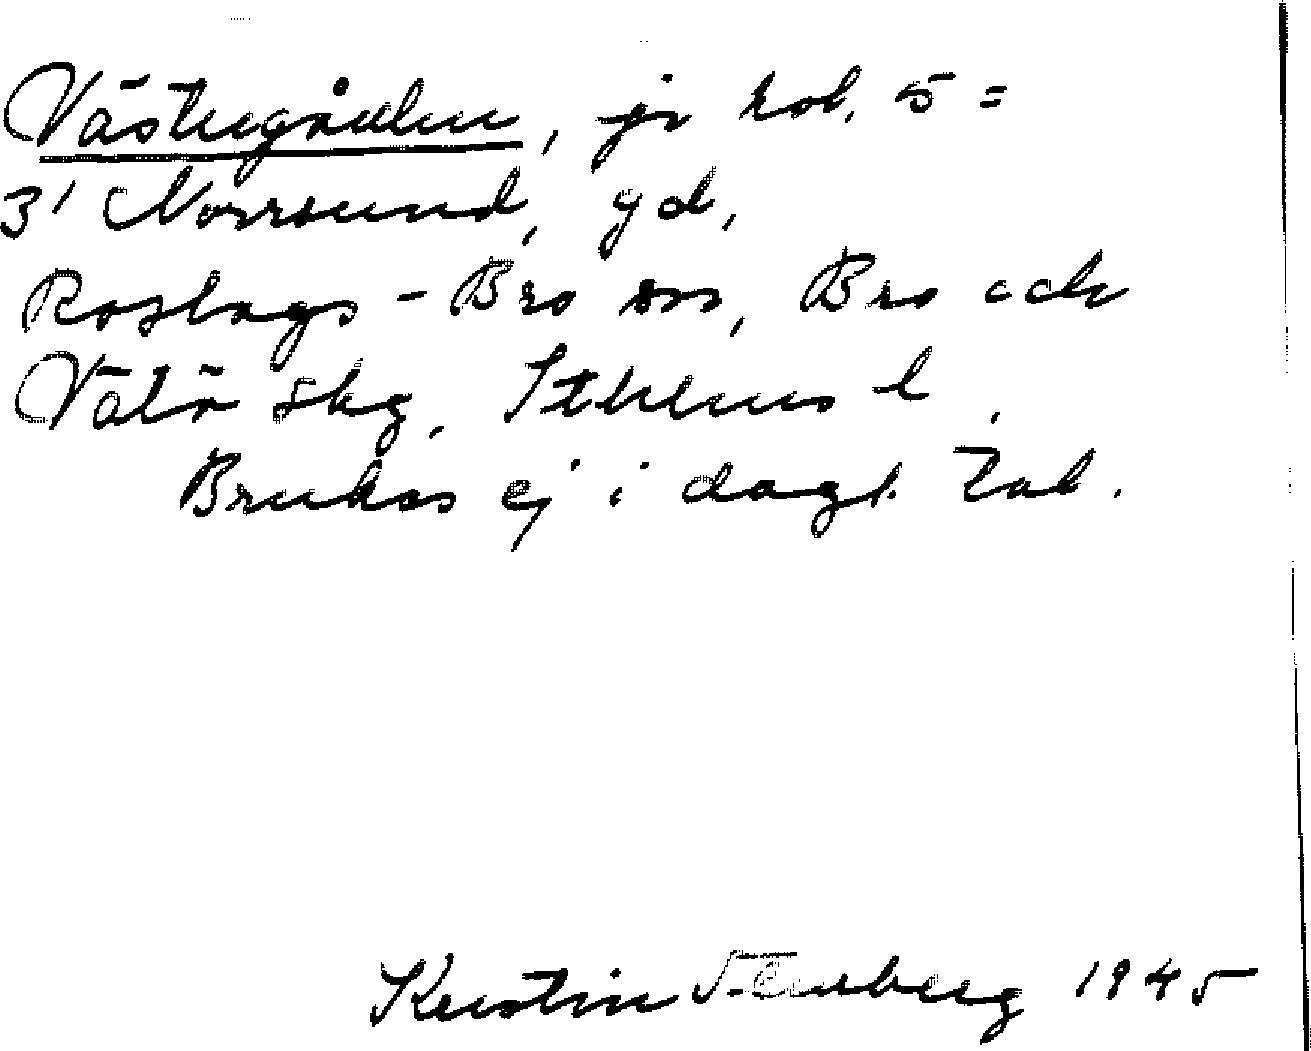 Västergården, jr kol. 5 =
3¹ Norrsund, gd,
Roslags-Bro sn, Bro och
Vätö skg, Sthlms l.
Brukas ej i dagl. tal.
Kerstin 1945